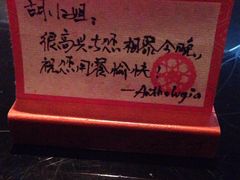 小姐：
很高兴与您相聚今晚，
祝您用餐愉快！
—Anthologia